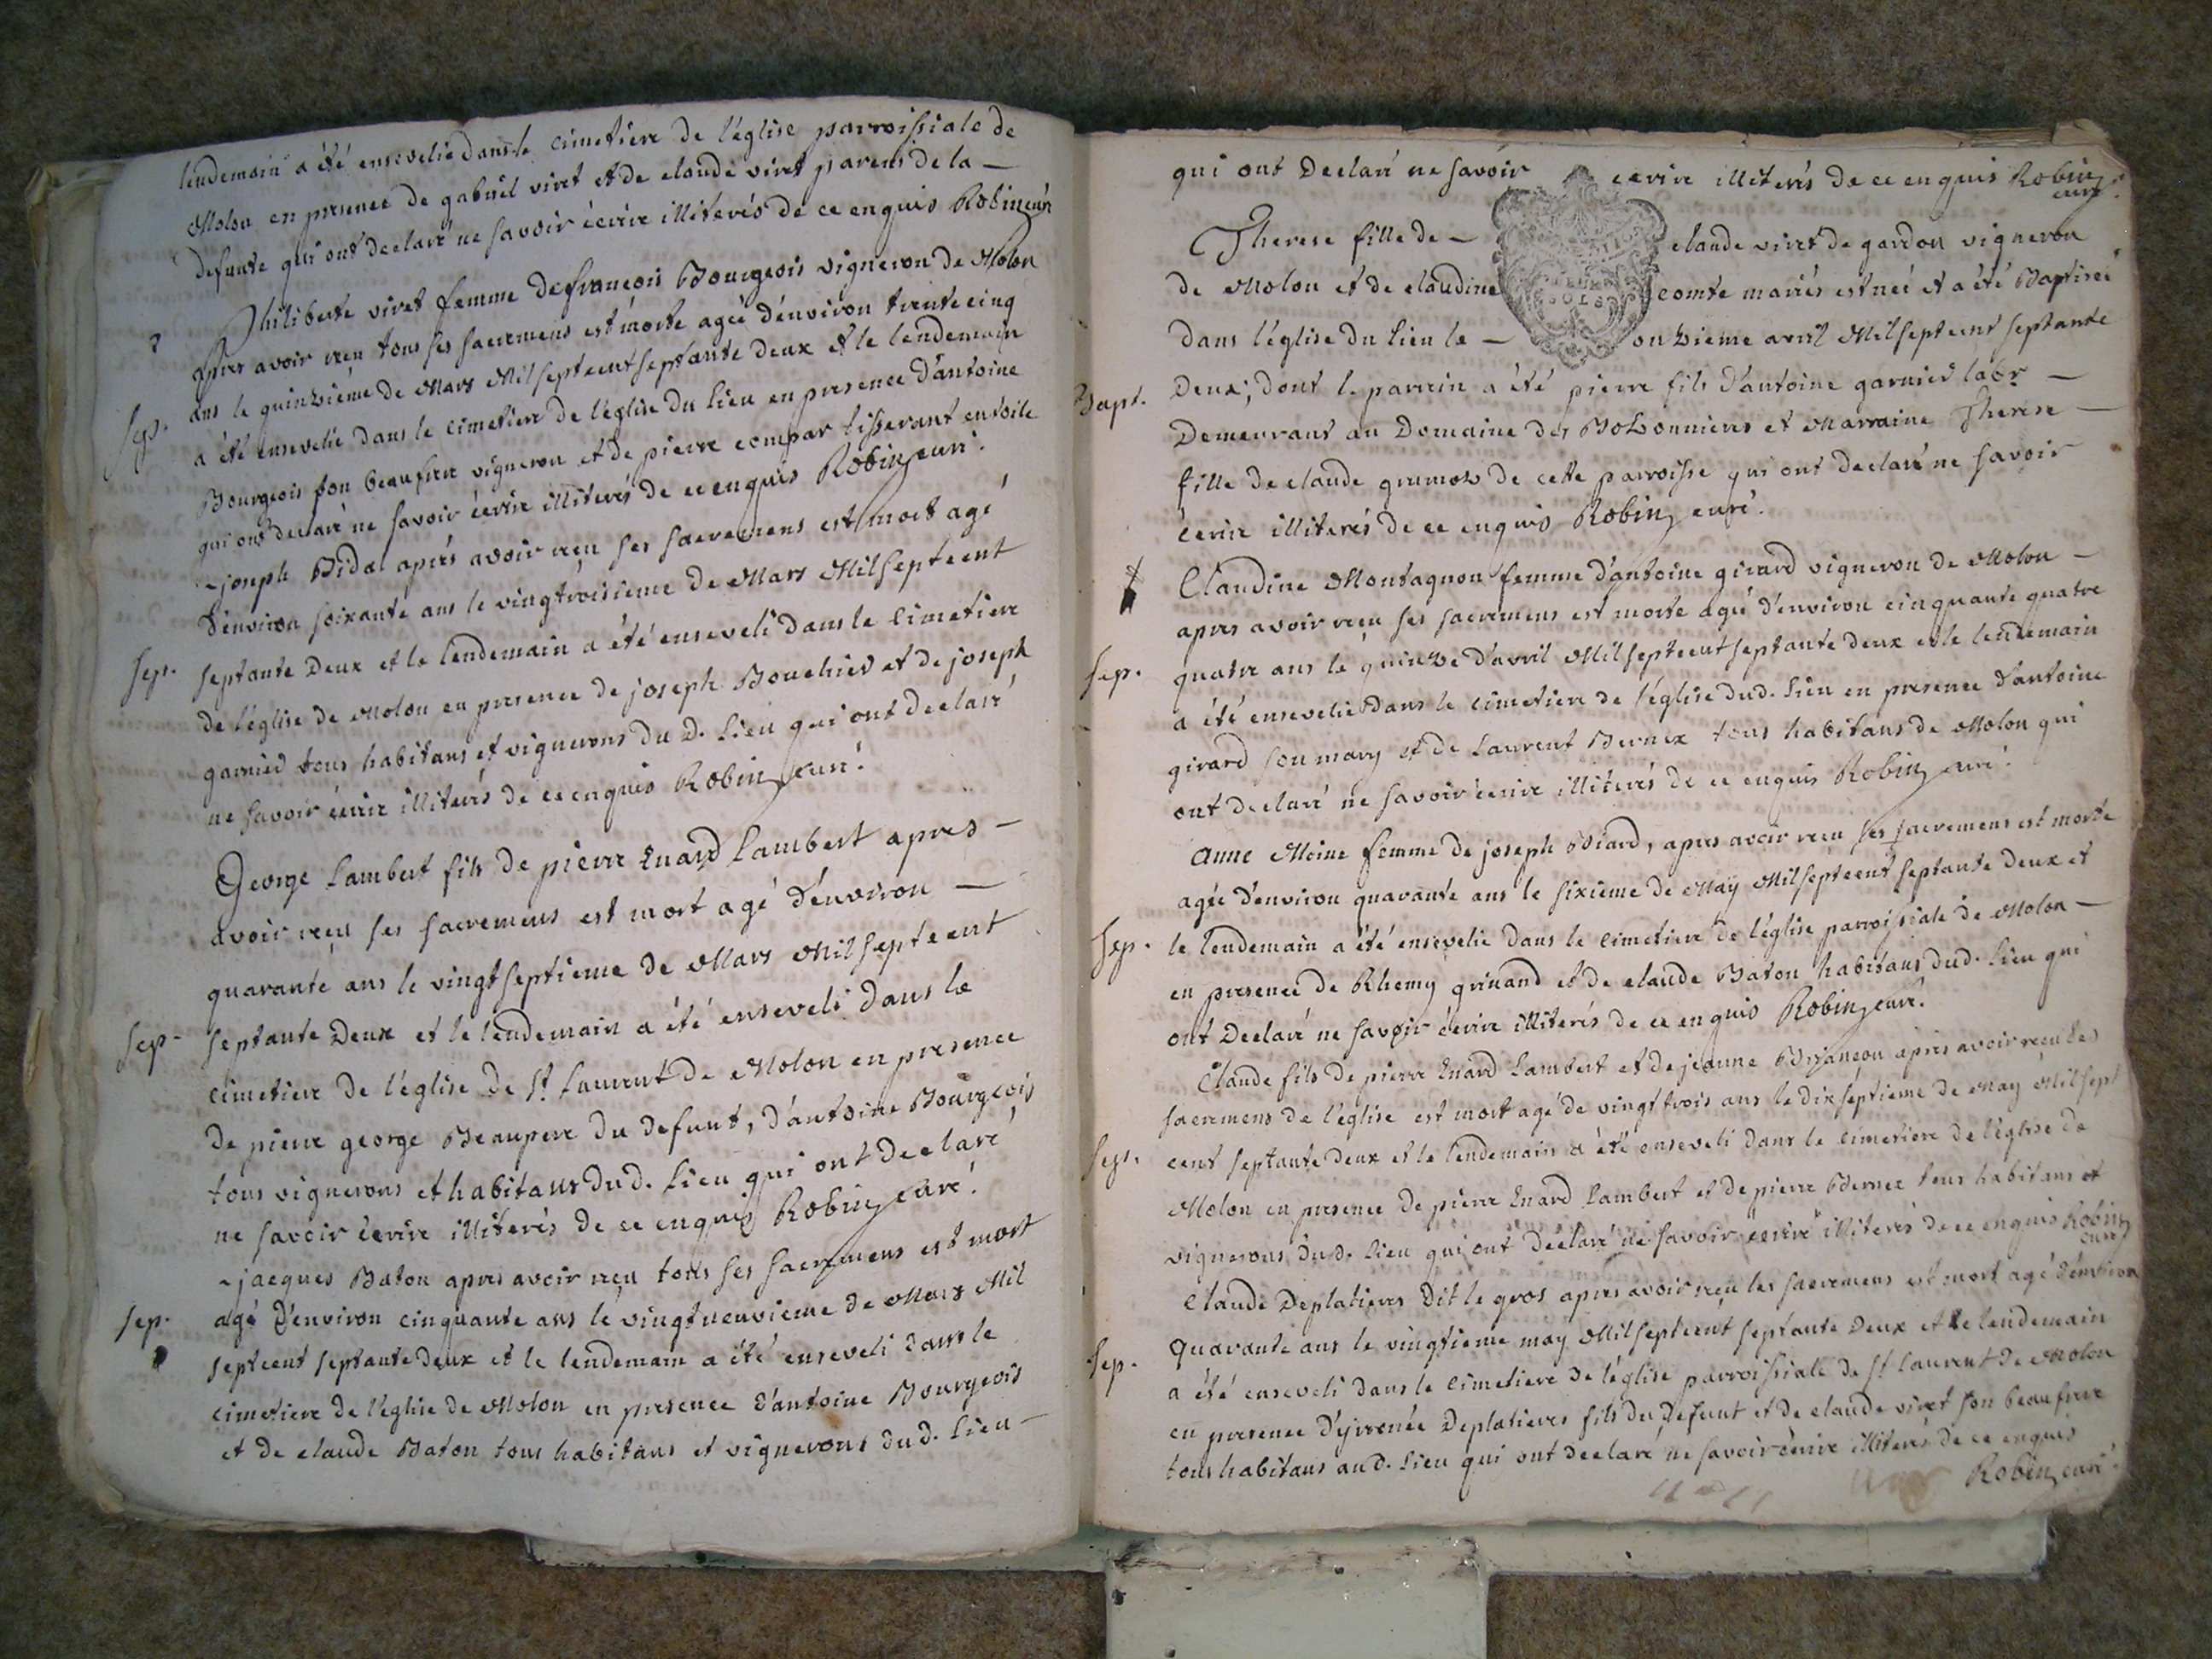 lendemain a été ensevelie dans le cimetiere de l'église parroissiale de
Molon en presence de gabriel viret et de claude viret parens de la —
defunte qui ont declaré ne savoir écrire illiterés de ce enquis Robin curé
Philiberte viret femme de françois Bourgeois vigneron de Molon
apres avoir reçu tous ses sacremens est morte agée d'environ trente cinq
ans le quinzième de Mars Milseptcent septante deux et le lendemain
Sep.
a été ensevelie dans le cimetiere de l'église du lieu en presence d'antoine
Bourgeois son beaufrere vigneron et de pierre compar tisserant en toile
qui ont declaré ne savoir écrire illiterés de ce enquis Robin curé.
joseph Vidal après avoir reçu ses sacremens est mort agé
d'environ soixante ans le vingtroisieme de Mars Milseptcent
Sep.
septante Deux et le lendemain a été enseveli dans le cimetiere
de l'église de Molon en presence de joseph Bouchier et de joseph
garnier tous habitans et vignerons du d. lieu qui ont declaré
ne savoir écrire illiterés de ce enquis Robin curé.
George Lambert fils de pierre Enard Lambert apres —
avoir reçu ses sacremens est mort agé d'environ —
quarante ans le vingtseptieme de Mars Milseptcent
Sep.
septante Deux et le lendemain a été enseveli dans le
cimetiere de l'église de St. Laurent de Molon en presence
de pierre george Beaupere du defunt, d'antoine Bourgeois
tous vignerons et habitans dud. lieu qui ont declaré
ne savoir écrire illiterés de ce enquis Robin curé.
jacques Baton apres avoir reçu tous ses sacremens est mort
Sep.
agé d'environ cinquante ans le vingtneuvieme de Mars Mil
septcent septante deux et le lendemain a été enseveli dans le
cimetiere de l'église de Molon en presence d'antoine Bourgeois
et de claude Baton tous habitans et vignerons dud. lieu —
qui ont Declaré ne savoir écrire illiterés de ce enquis Robin
curé.
Therese fille de — claude viret de gardon vigneron
de Molon et de claudine comte mariés est née et a été Baptisée
dans l'église du lieu le — onzieme avril Milseptcent septante
Bapt.
Deux, dont le parrain a été pierre fils d'antoine garnier labr —
Demeurant au Domaine des et Marraine Therese —
fille de claude grumod de cette parroisse qui ont declaré ne savoir
écrire illiterés de ce enquis Robin curé.
Claudine Montagnon femme d'antoine girard vigneron de Molon —
apres avoir reçu ses sacremens est morte agée d'environ cinquante quatre
Sep.
quatre ans le quinze d'avril Milseptcent septante deux et le lendemain
a été ensevelie dans le cimetiere de l'église dud. lieu en presence d'antoine
girard son mary et de Laurent Bernex tous habitans de Molon qui
ont declaré ne savoir écrire illiterés de ce enquis Robin curé.
Anne Moine femme de joseph Viard, apres avoir reçu ses sacremens est morte
agée d'environ quarante ans le sixieme de May Milseptcent septante Deux et
Sep.
le lendemain a été ensevelie dans le cimetiere de l'église parroissiale de Molon —
en presence de Rhemy grinand et de claude Baton habitans dud. lieu qui
ont Declaré ne savoir écrire illiterés de ce enquis Robin curé.
Claude fils de pierre Enard Lambert et de jeanne Brjançon après avoir reçu les
sacremens de l'église est mort agé de vingt trois ans le dixseptieme de May Milsept
Sep.
cent septante deux et le lendemain a été enseveli dans le cimetiere de l'église de
Molon en presence de pierre Enard Lambert et de pierre Bernex tous habitans et
vignerons dud. lieu qui ont declaré ne savoir écrire illiterés de ce enquis Robin
curé
Claude Deplatieres Dit le gros apres avoir reçu les sacremens est mort agé d'environ
Sep.
quarante ans le vingtieme may Milseptcent septante Deux et le lendemain
a été enseveli dans le cimetiere de l'église parroissiale de St Laurent de Molon
en presence d'yrenée Deplatieres fils du Defunt et de claude viret son beaufrere
tous habitans aud. lieu qui ont declaré ne savoir écrire illiterés de ce enquis
Robin curé.